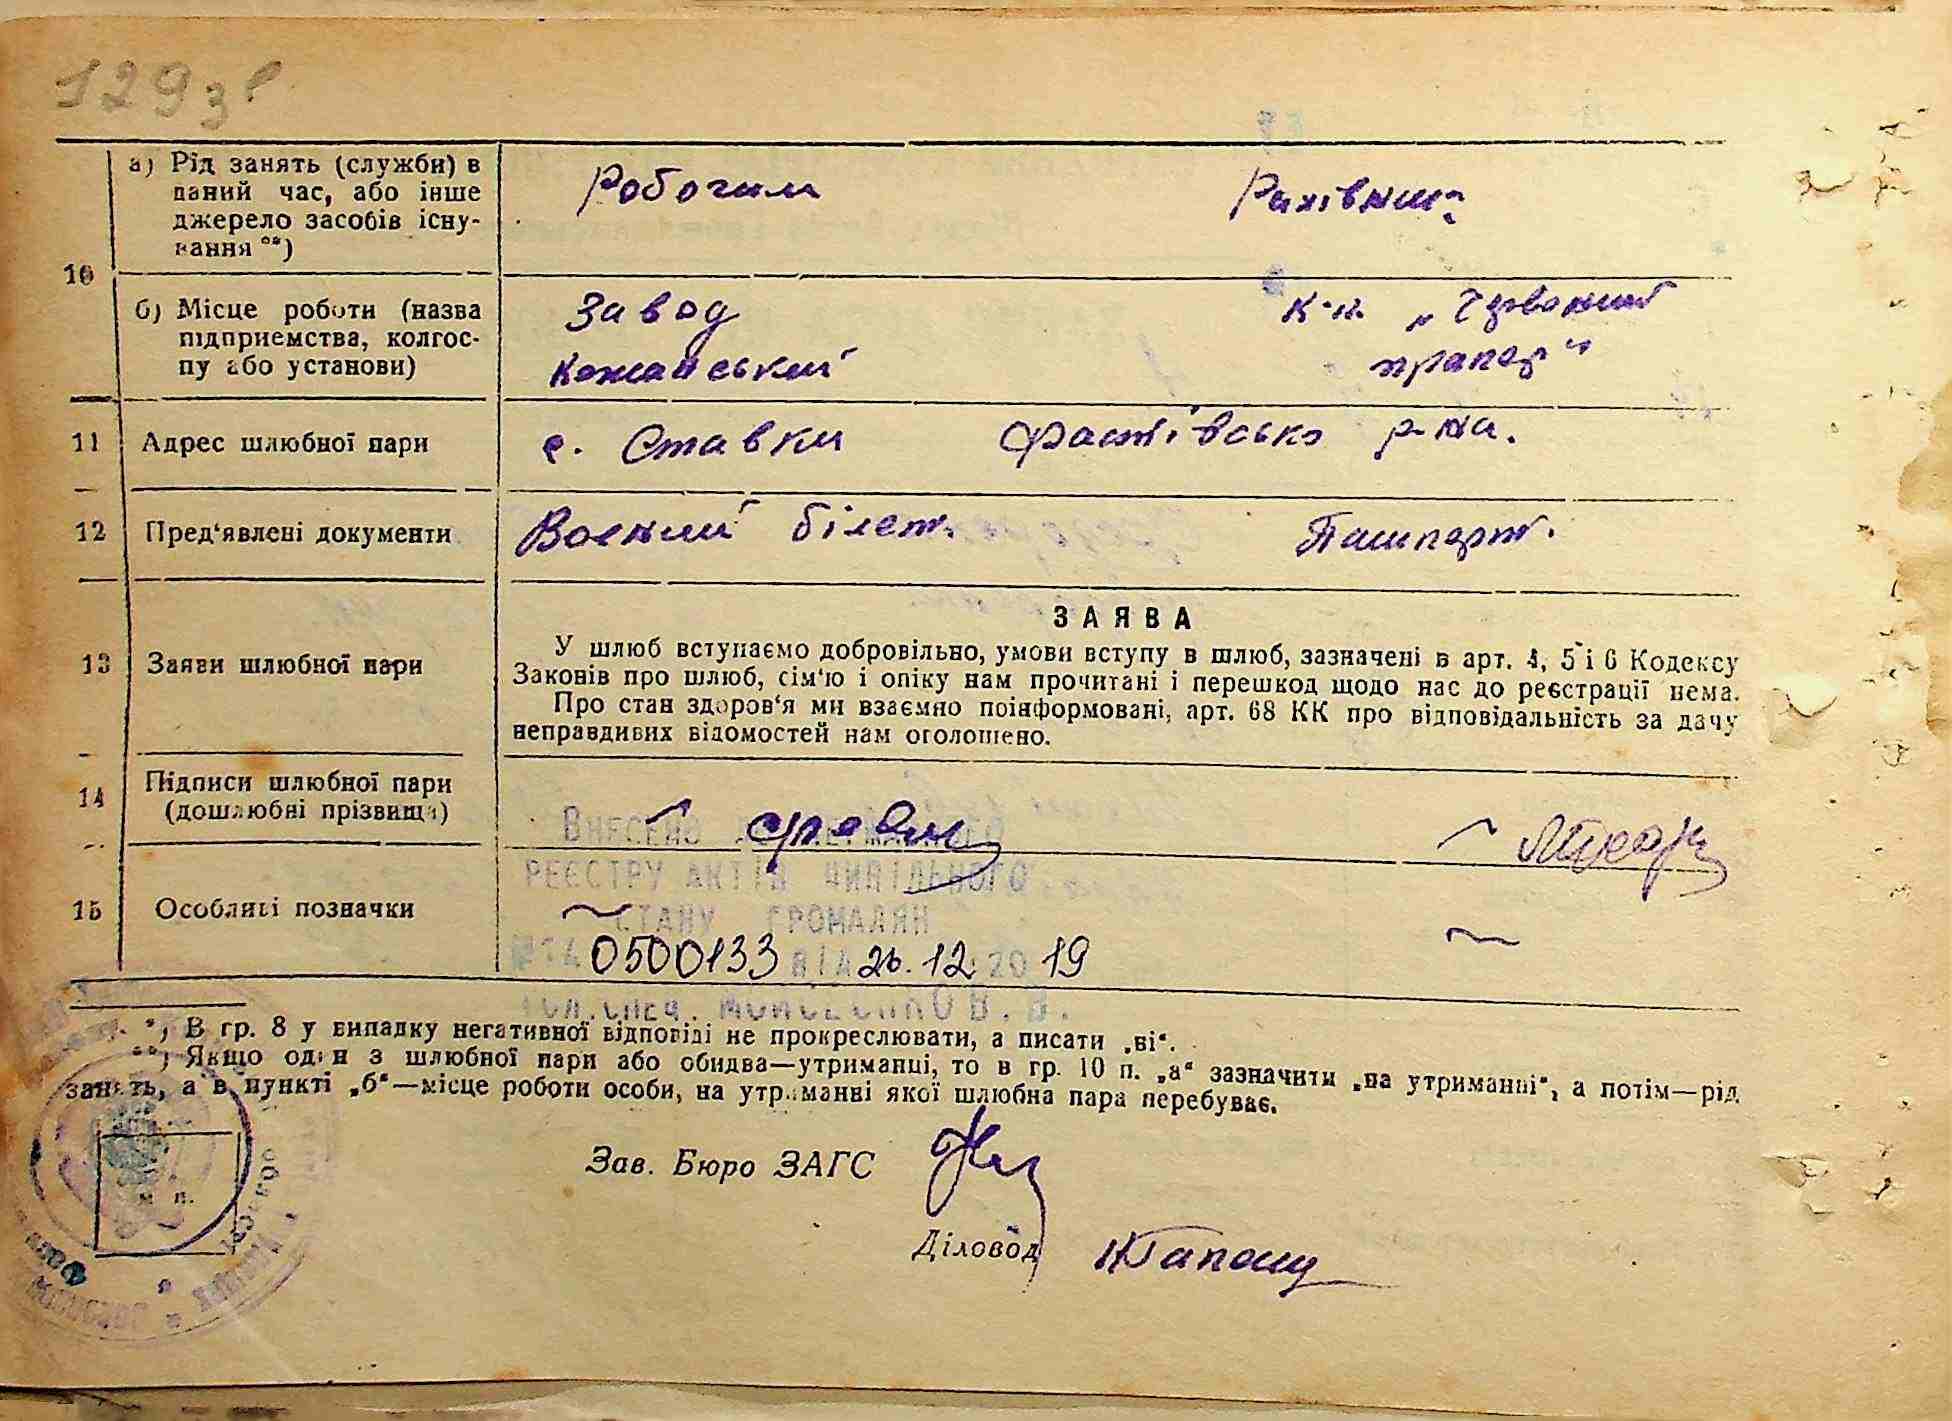 129 зв
10
а) Рід занять (служби) в даний час, або інше джерело засобів існування **)
Робочим
Рахівник
б) Місце роботи (назва підприємства, колгоспу або установи)
Завод
Кожанський
к-п. „Червоний
прапор"
11 Адрес шлюбної пари
с. Ставки Фастівсько р-на.
12 Пред'явлені документи
Воєний білет.
Пашпорт.
ЗАЯВА
13 Заяви шлюбної пари
У шлюб вступаємо добровільно, умови вступу в шлюб, зазначені в арт. 4, 5 і 6 Кодексу
Законів про шлюб, сім'ю і опіку нам прочитані і перешкод щодо нас до реєстрації нема.
Про стан здоров'я ми взаємно поінформовані, арт. 68 КК про відповідальність за дачу
неправдивих відомостей нам оголошено.
14 Підписи шлюбної пари
(дошлюбні прізвища)
ВНЕСЕНО ДО ДЕРЖАВНОГО
РЕЄСТРУ АКТІВ ЦИВІЛЬНОГО
15 Особливі позначки
СТАНУ ГРОМАДЯН
0500133 ВІД 26.12.2019
ГОЛ.СПЕЦ. МОЙСЕЄНКО В.В.
*) В гр. 8 у випадку негативної відповіді не прокреслювати, а писати „ні“.
**) Якщо один з шлюбної пари або обидва—утриманці, то в гр. 10 п. „а“ зазначити „на утриманні“, а потім—рід
занять, а в пункті „б“—місце роботи особи, на утриманні якої шлюбна пара перебуває.
м п.
Зав. Бюро ЗАГС
Діловод